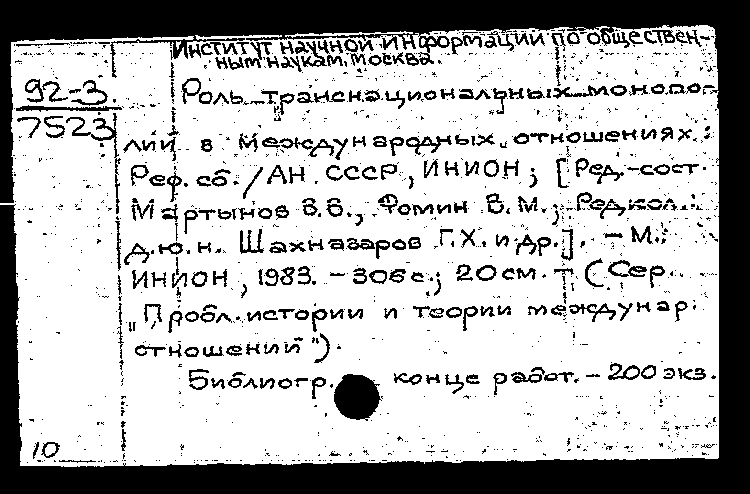 Институт научной информации по обществен-
ным наукам. Москва.
92-3
7523
Роль транснациональных монопо-
лий в международных отношениях:
Реф. сб. / АН СССР, ИНИОН; [Ред.-сост.
Мартынов Б.Б., Фомин В.М.; Редкол.:
д.ю.н. Шахназаров Г.Х. и др.]. - М.:
ИНИОН, 1983. - 306 с.; 20 см. - (Сер.
"Пробл. истории и теории междунар.
отношений").
Библиогр. конце работ. - 200 экз.
10